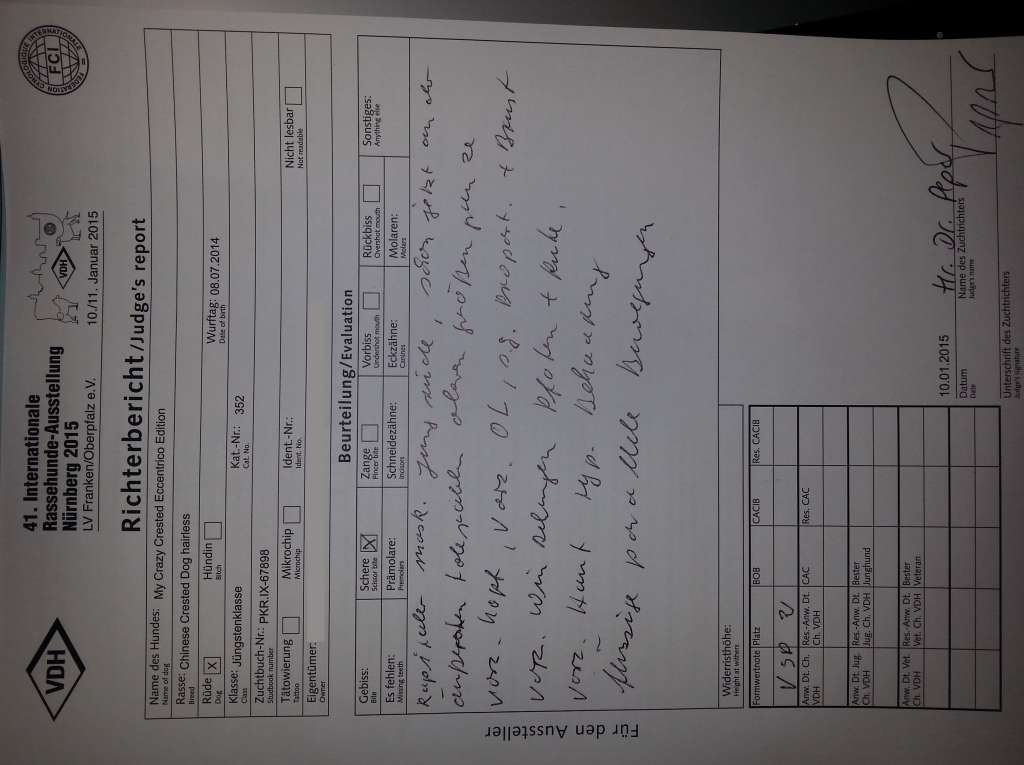 VDH
41. Internationale
Rassehunde-Ausstellung
Nürnberg 2015
LV Franken/Oberpfalz e.V.
VDH
10./11. Januar 2015
FEDERATION CYNOLOGIQUE INTERNATIONALE
FCI
Richterbericht/Judge's report
Name des Hundes: My Crazy Crested Eccentrico Edition
Name of dog
Rasse: Chinese Crested Dog hairless
Breed
Rüde X Hündin Wurftag: 08.07.2014
Dog Bitch Date of birth
Klasse: Jüngstenklasse Kat.-Nr.: 352
Class Cat. No.
Zuchtbuch-Nr.: PKR.IX-67898
Studbook number
Tätowierung Mikrochip Ident.-Nr.: Nicht lesbar
Tattoo Microchip Ident. No. Not readable
Eigentümer:
Owner
Beurteilung/Evaluation
Gebiss: Schere X Zange Vorbiss Rückbiss Sonstiges:
Bite Scissor bite Pincer bite Undershot mouth Overshot mouth Anything else
Es fehlen: Prämolare: Schneidezähne: Eckzähne: Molaren:
Missing teeth Premolars Incisors Canines Molars
mask. schon jetzt an der
tolerablen oberen Größen
vorz. Kopf, vorz. OL, s.g. + Brust
vorz. Winkelungen Pfoten + Rute,
vorz. Haut typ. Behaarung
flüssige parallele Bewegungen
Für den Aussteller
Widerristhöhe:
Height at withers
Formwertnote Platz BOB CACIB Res. CACIB
VSP 2
Anw. Dt. Ch. VDH Res.-Anw. Dt. Ch. VDH CAC Res. CAC
Anw. Dt. Jug. Ch. VDH Res.-Anw. Dt. Jug. Ch. VDH Bester Junghund
Anw. Dt. Vet. Ch. VDH Res.-Anw. Dt. Vet. Ch. VDH Bester Veteran
10.01.2015 Hr. Dr.
Datum Name des Zuchtrichters
Date Judge's name
Unterschrift des Zuchtrichters
Judge's signature